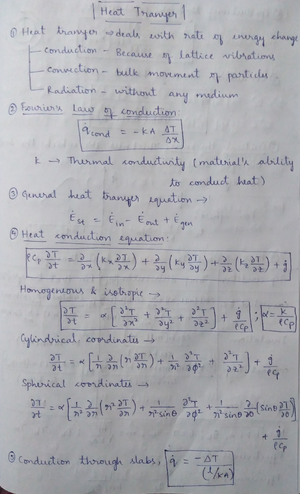 Heat Transfer
① Heat transfer → deals with rate of energy change
Conduction - Because of lattice vibrations
Convection - bulk movement of particles
Radiation - without any medium
② Fourier's law of conduction:
q̇cond = -kA ΔT/Δx
k → Thermal conductivity (material's ability
to conduct heat)
③ General heat transfer equation →
Ėst = Ėin - Ėout + Ėgen
④ Heat conduction equation:
ρCp ∂T/∂t = ∂/∂x (kx ∂T/∂x) + ∂/∂y (ky ∂T/∂y) + ∂/∂z (kz ∂T/∂z) + ġ
Homogeneous & isotropic →
∂T/∂t = α [∂²T/∂x² + ∂²T/∂y² + ∂²T/∂z²] + ġ/ρCp ; α = k/ρCp
Cylindrical coordinates →
∂T/∂t = α [1/r ∂/∂r (r ∂T/∂r) + 1/r² ∂²T/∂φ² + ∂²T/∂z²] + ġ/ρCp
Spherical coordinates →
∂T/∂t = α [1/r² ∂/∂r (r² ∂T/∂r) + 1/r² sinθ ∂²T/∂φ² + 1/r² sinθ ∂/∂θ (sinθ ∂T/∂θ)]
+ ġ/ρCp
Conduction through slabs, q̇ = -ΔT/(l/kA)